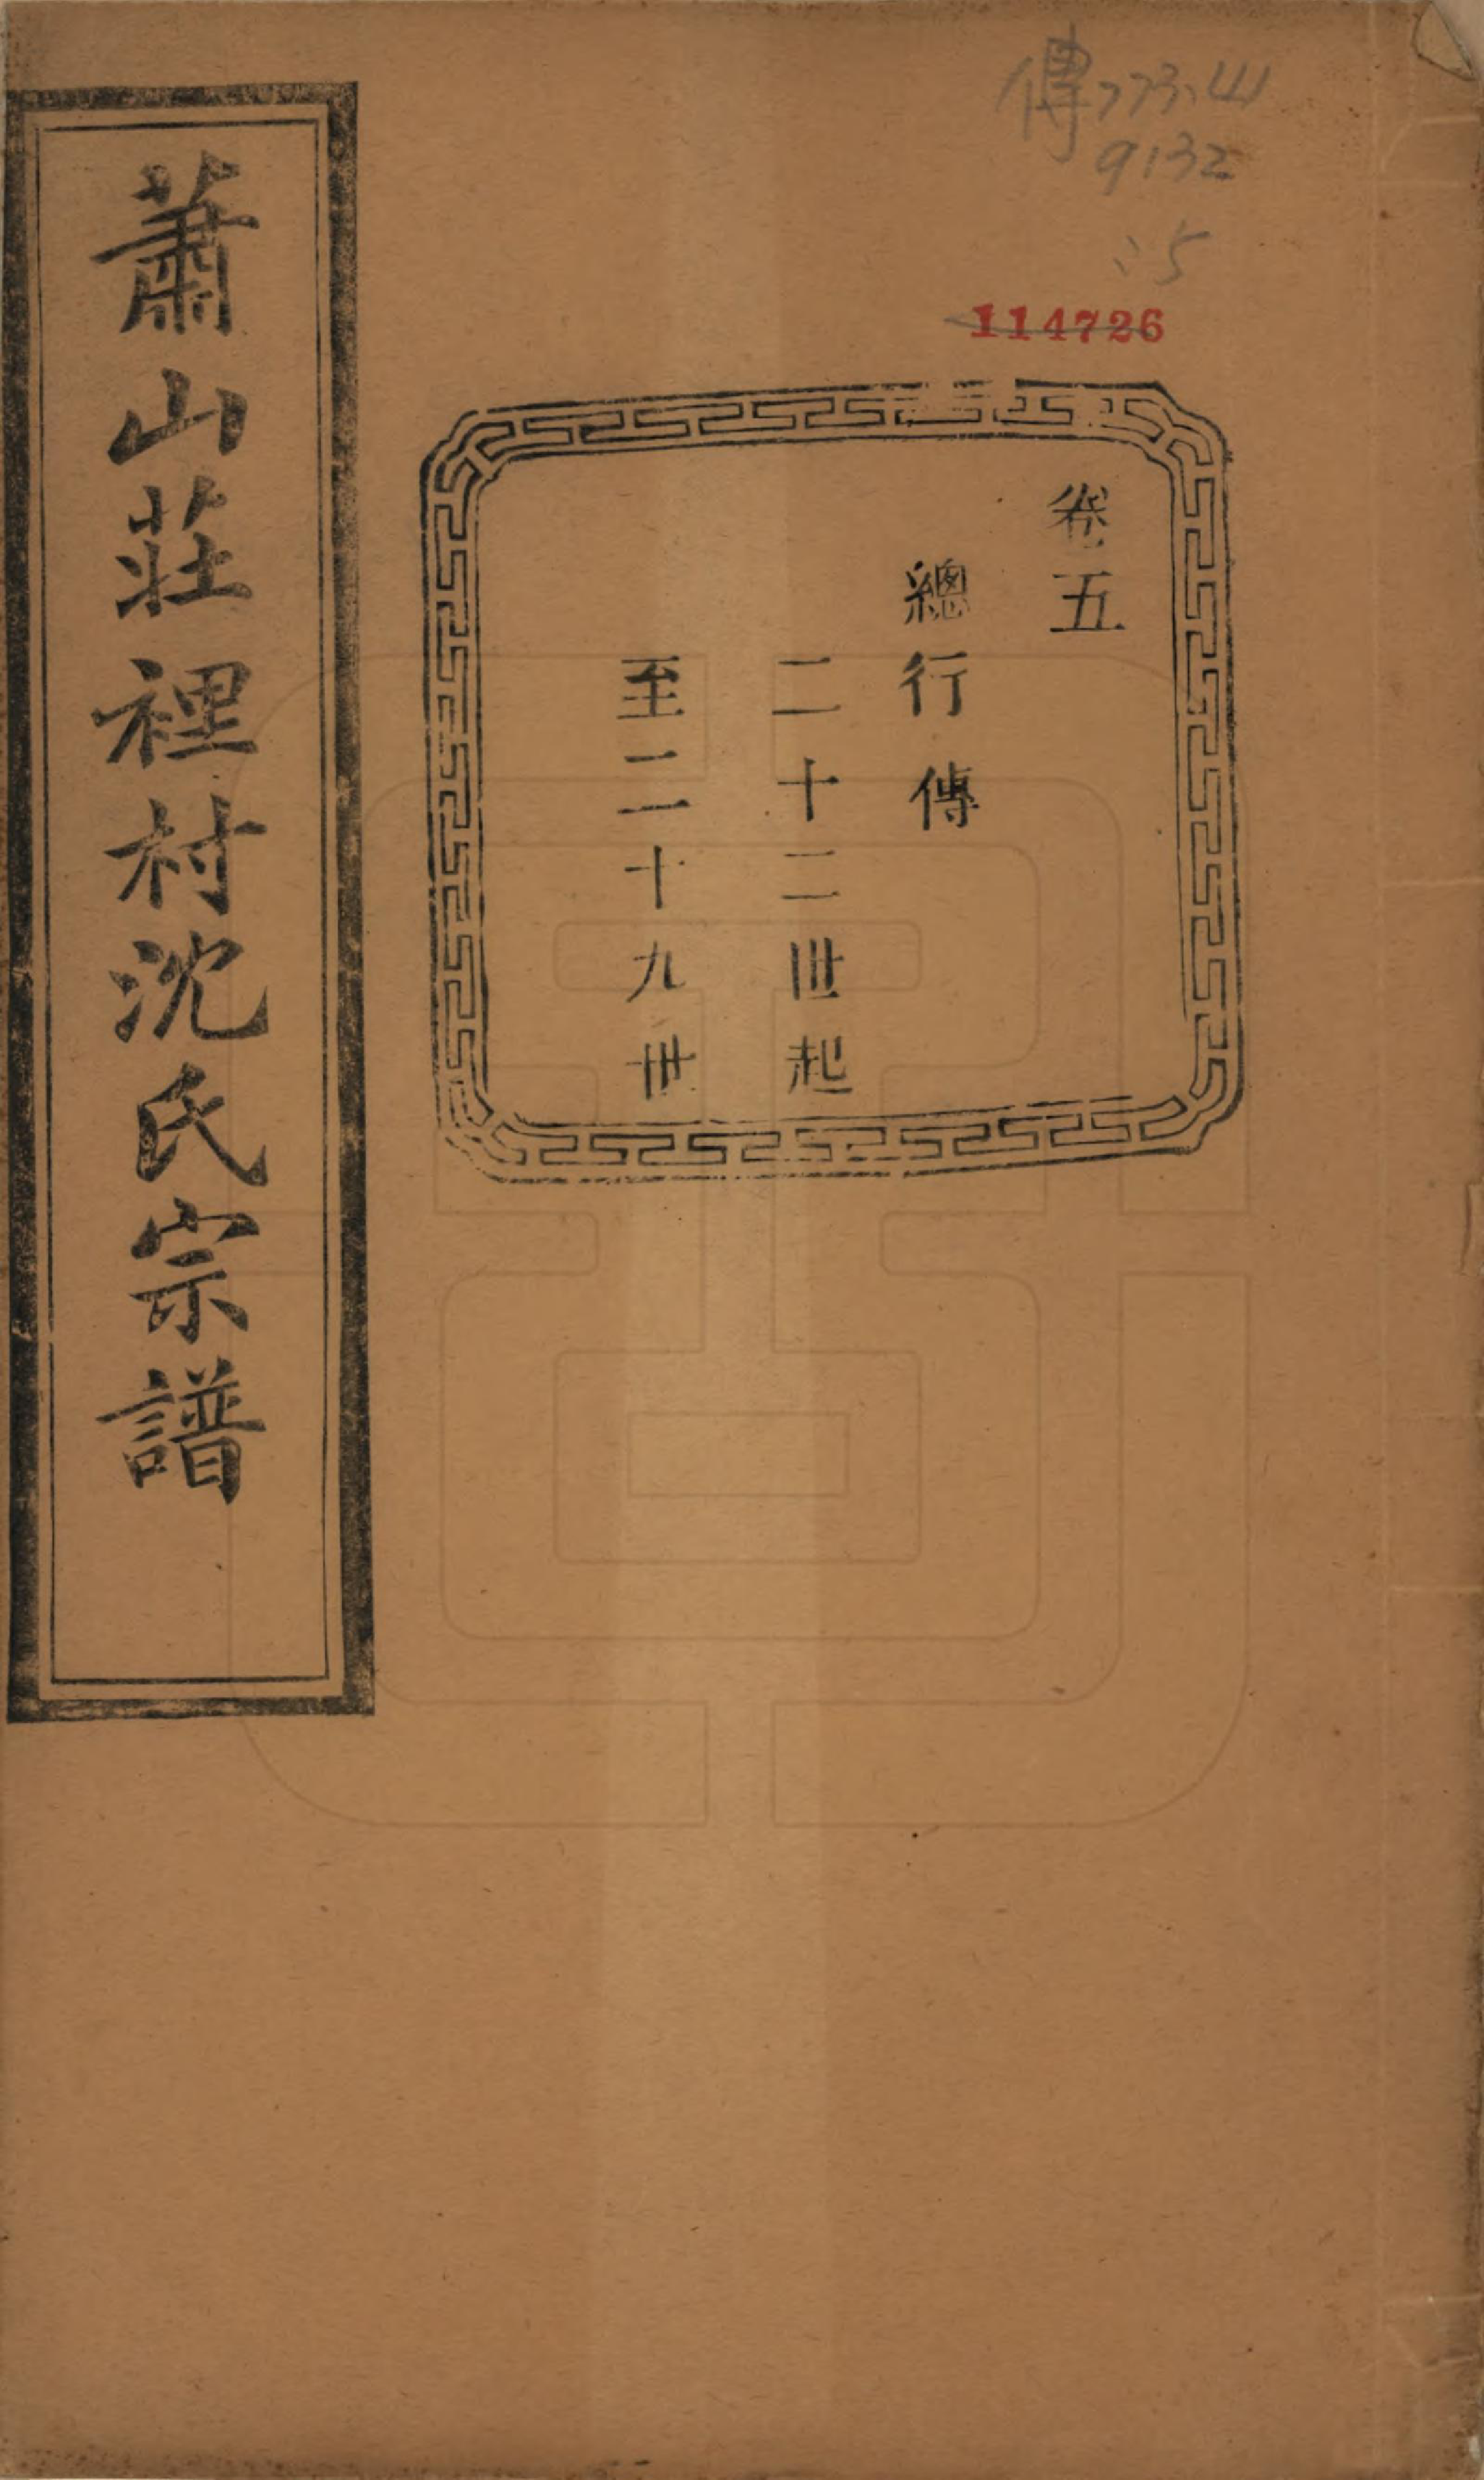 傳773.41
9132
:5
114726
卷五
總行傳
二十二世起
至二十九世
蕭山莊裡村沈氏宗譜